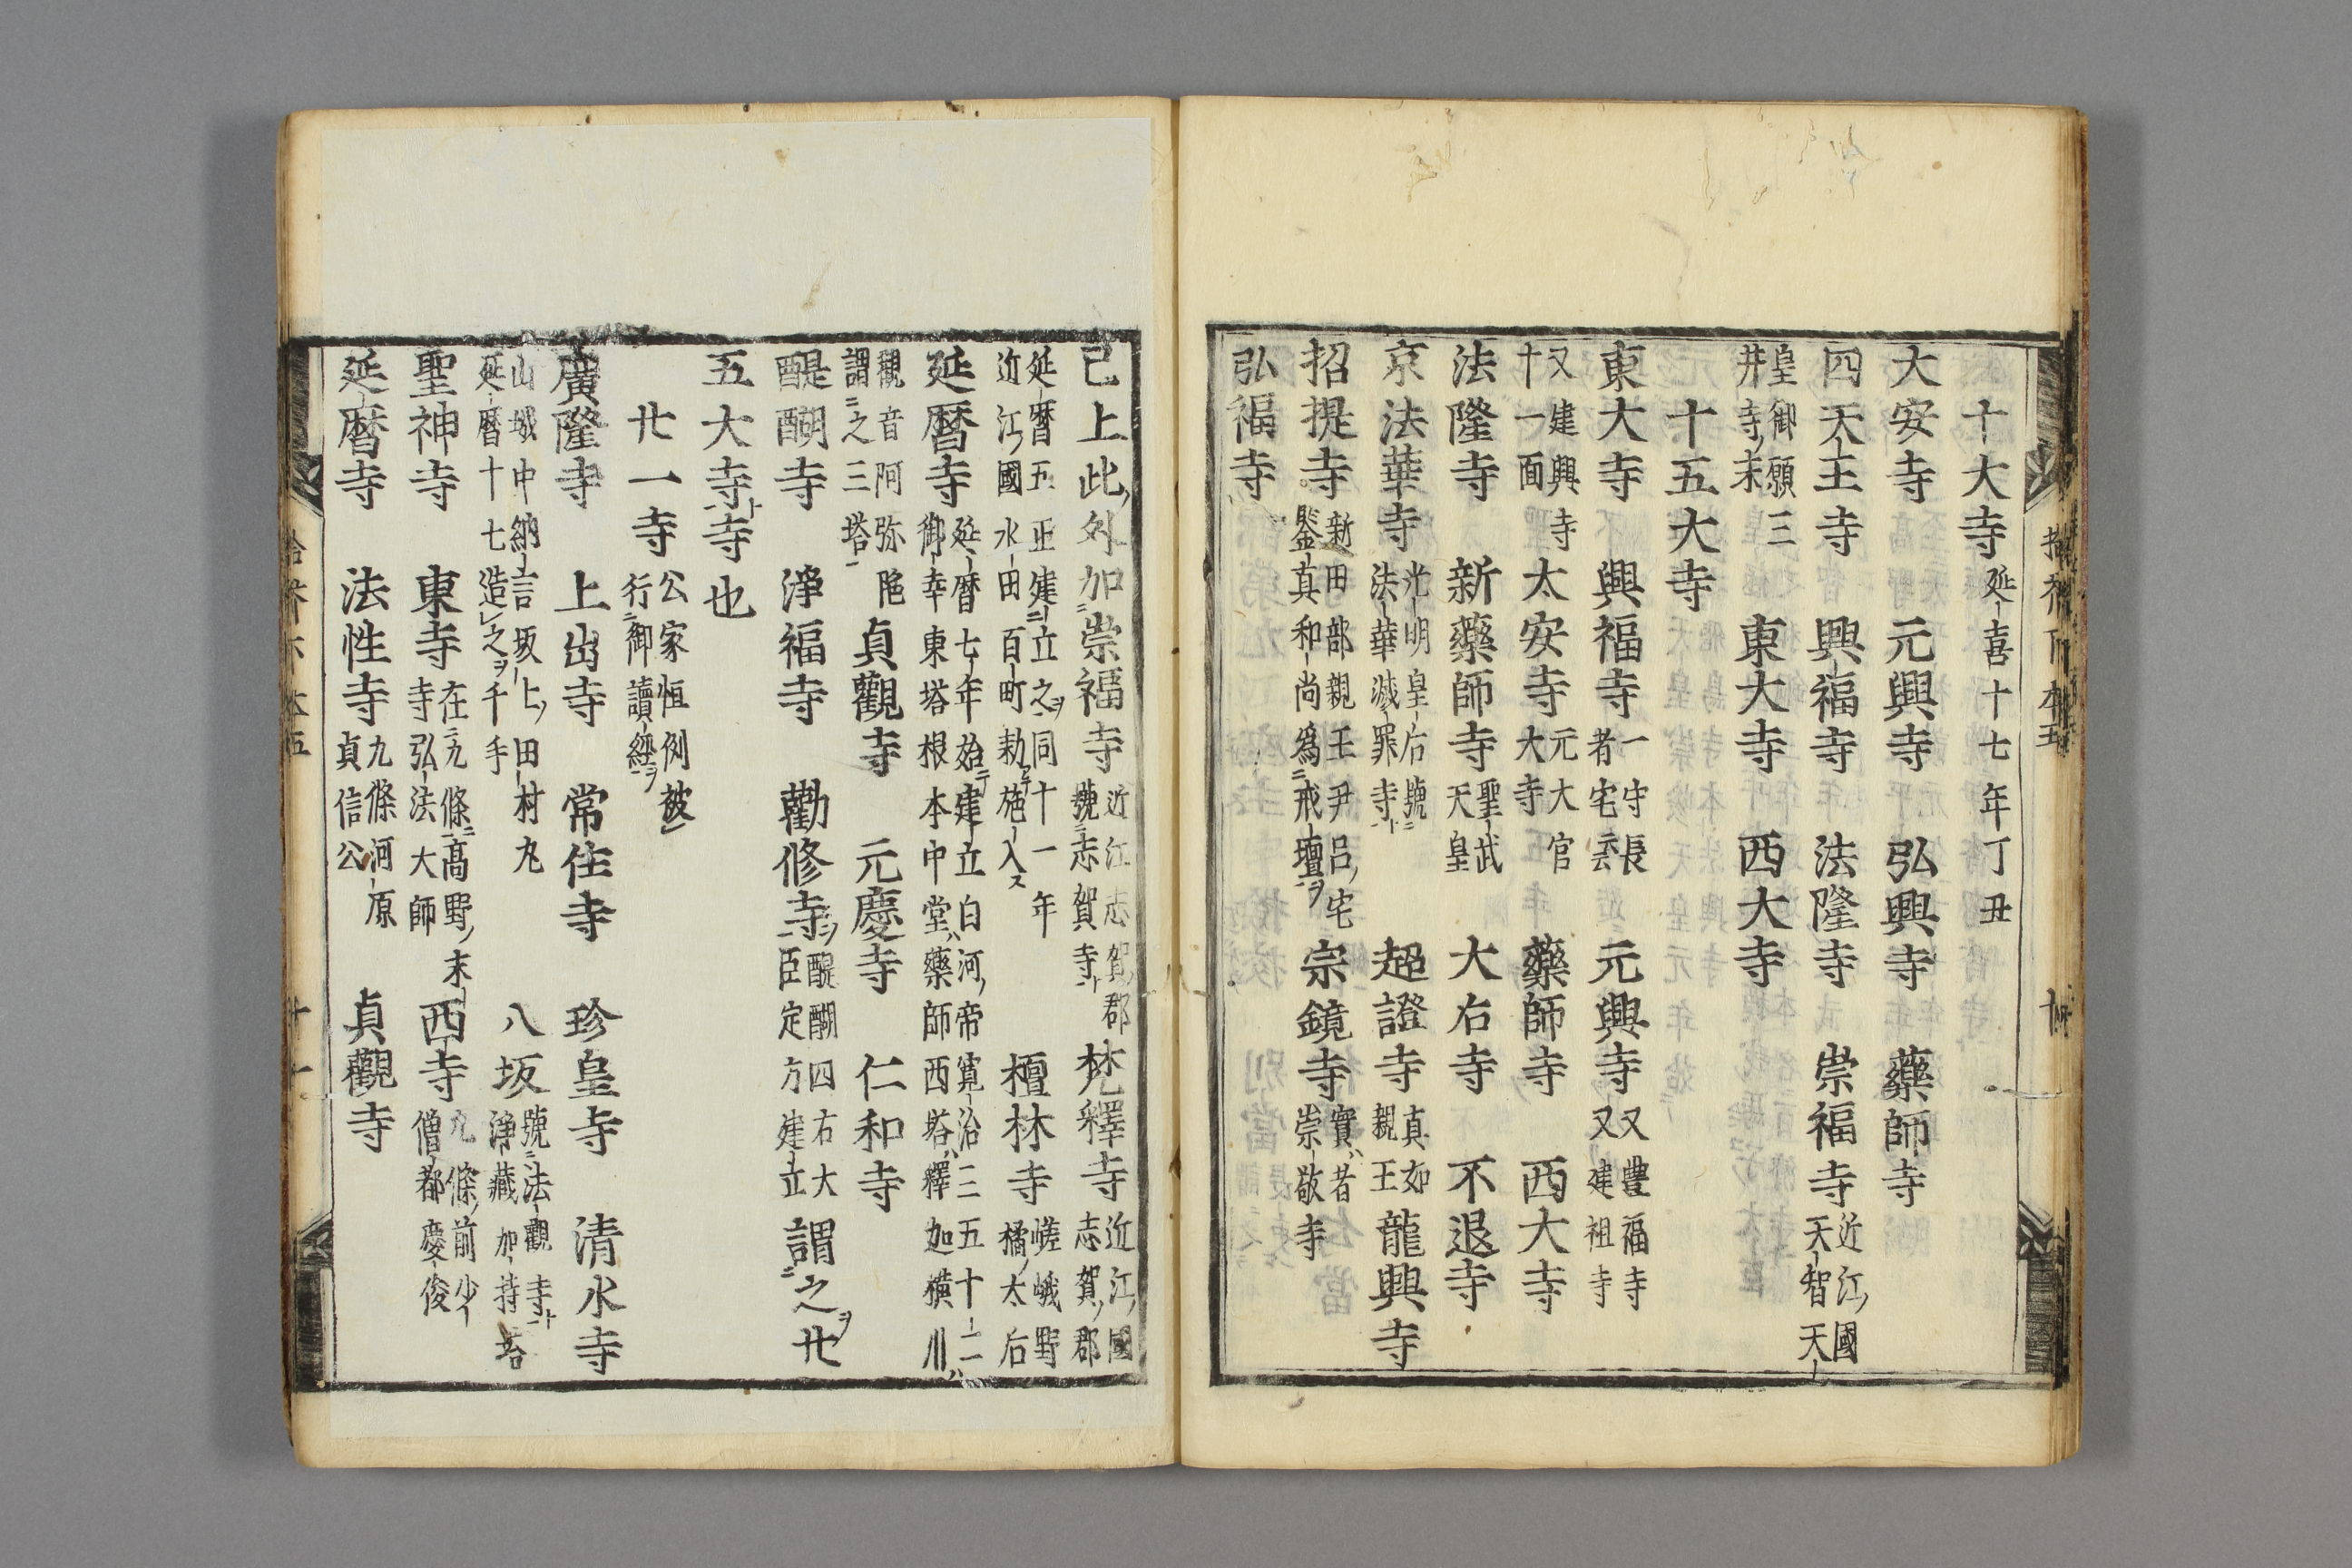 十大寺延喜十七年丁丑
大安寺 元興寺 弘興寺 藥師寺
四天王寺 興福寺 法隆寺 崇福寺近江ノ國天智天
皇御願三井寺ノ末 東大寺 西大寺
十五大寺
東大寺 興福寺一守長者宅云 元興寺又豊福寺又建祖寺
又建興寺十一面 太安寺元大官大寺 藥師寺 西大寺
法隆寺 新藥師寺聖武天皇 大右寺 不退寺
京法華寺光明皇后號ニ法華滅罪寺ト 超證寺真如親王 龍興寺
招提寺新田部親王尹呂ノ宅鑒真和尚爲ニ戒壇ヲ 宗鏡寺實ハ者崇敬寺
弘福寺
已上此ノ外加ニ崇福寺近江志賀ノ郡號ニ志賀寺ト 梵釋寺近江ノ國志賀ノ郡
延暦五正建ニ立之ヲ同十一年近江ノ國水田百町勅メ施入ス 檀林寺嵯峨野橘ノ太后
延暦寺延暦七年始テ建立白河ノ帝寛治三五十二ハ御幸東塔根本中堂ハ藥師西塔ハ釋迦横川ハ
觀音阿弥陁謂ニ之三塔 貞觀寺 元慶寺 仁和寺
醍醐寺 淨福寺 勸修寺醍醐四右大臣定方建立 謂ニ之ヲ廿
五大寺ト寺也
廿一寺公家恒例被行ニ御讀經ヲ
廣隆寺 上出寺 常住寺 珍皇寺 清水寺
山城中納言坂上ノ田村丸延暦十七造レ之ヲ千手 八坂號ニ法觀寺ト淨藏加持塔
聖神寺 東寺在ニ九條ニ高野ノ末寺弘法大師 西寺九條ノ前少僧都慶俊
延暦寺 法性寺九條河原貞信公 貞觀寺